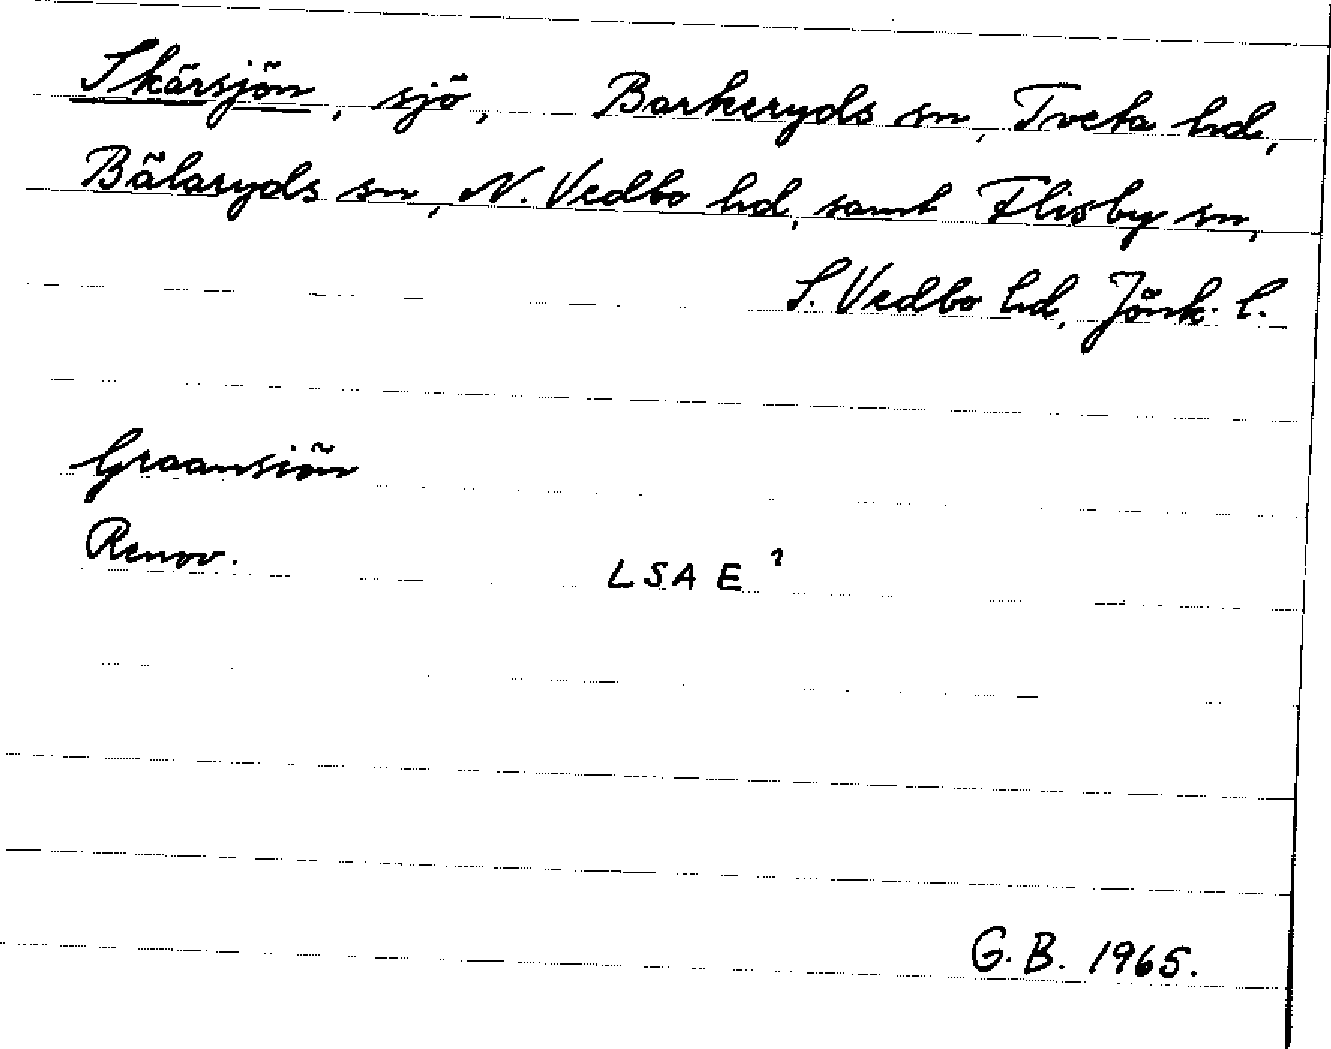 Skärsjön, sjö, Barkeryds sn, Tveta hd,
Bälaryds sn, N. Vedbo hd, samt Flisby sn,
S. Vedbo hd, Jönk. l.
Graansiön
Renov. LSA E
G. B. 1965.